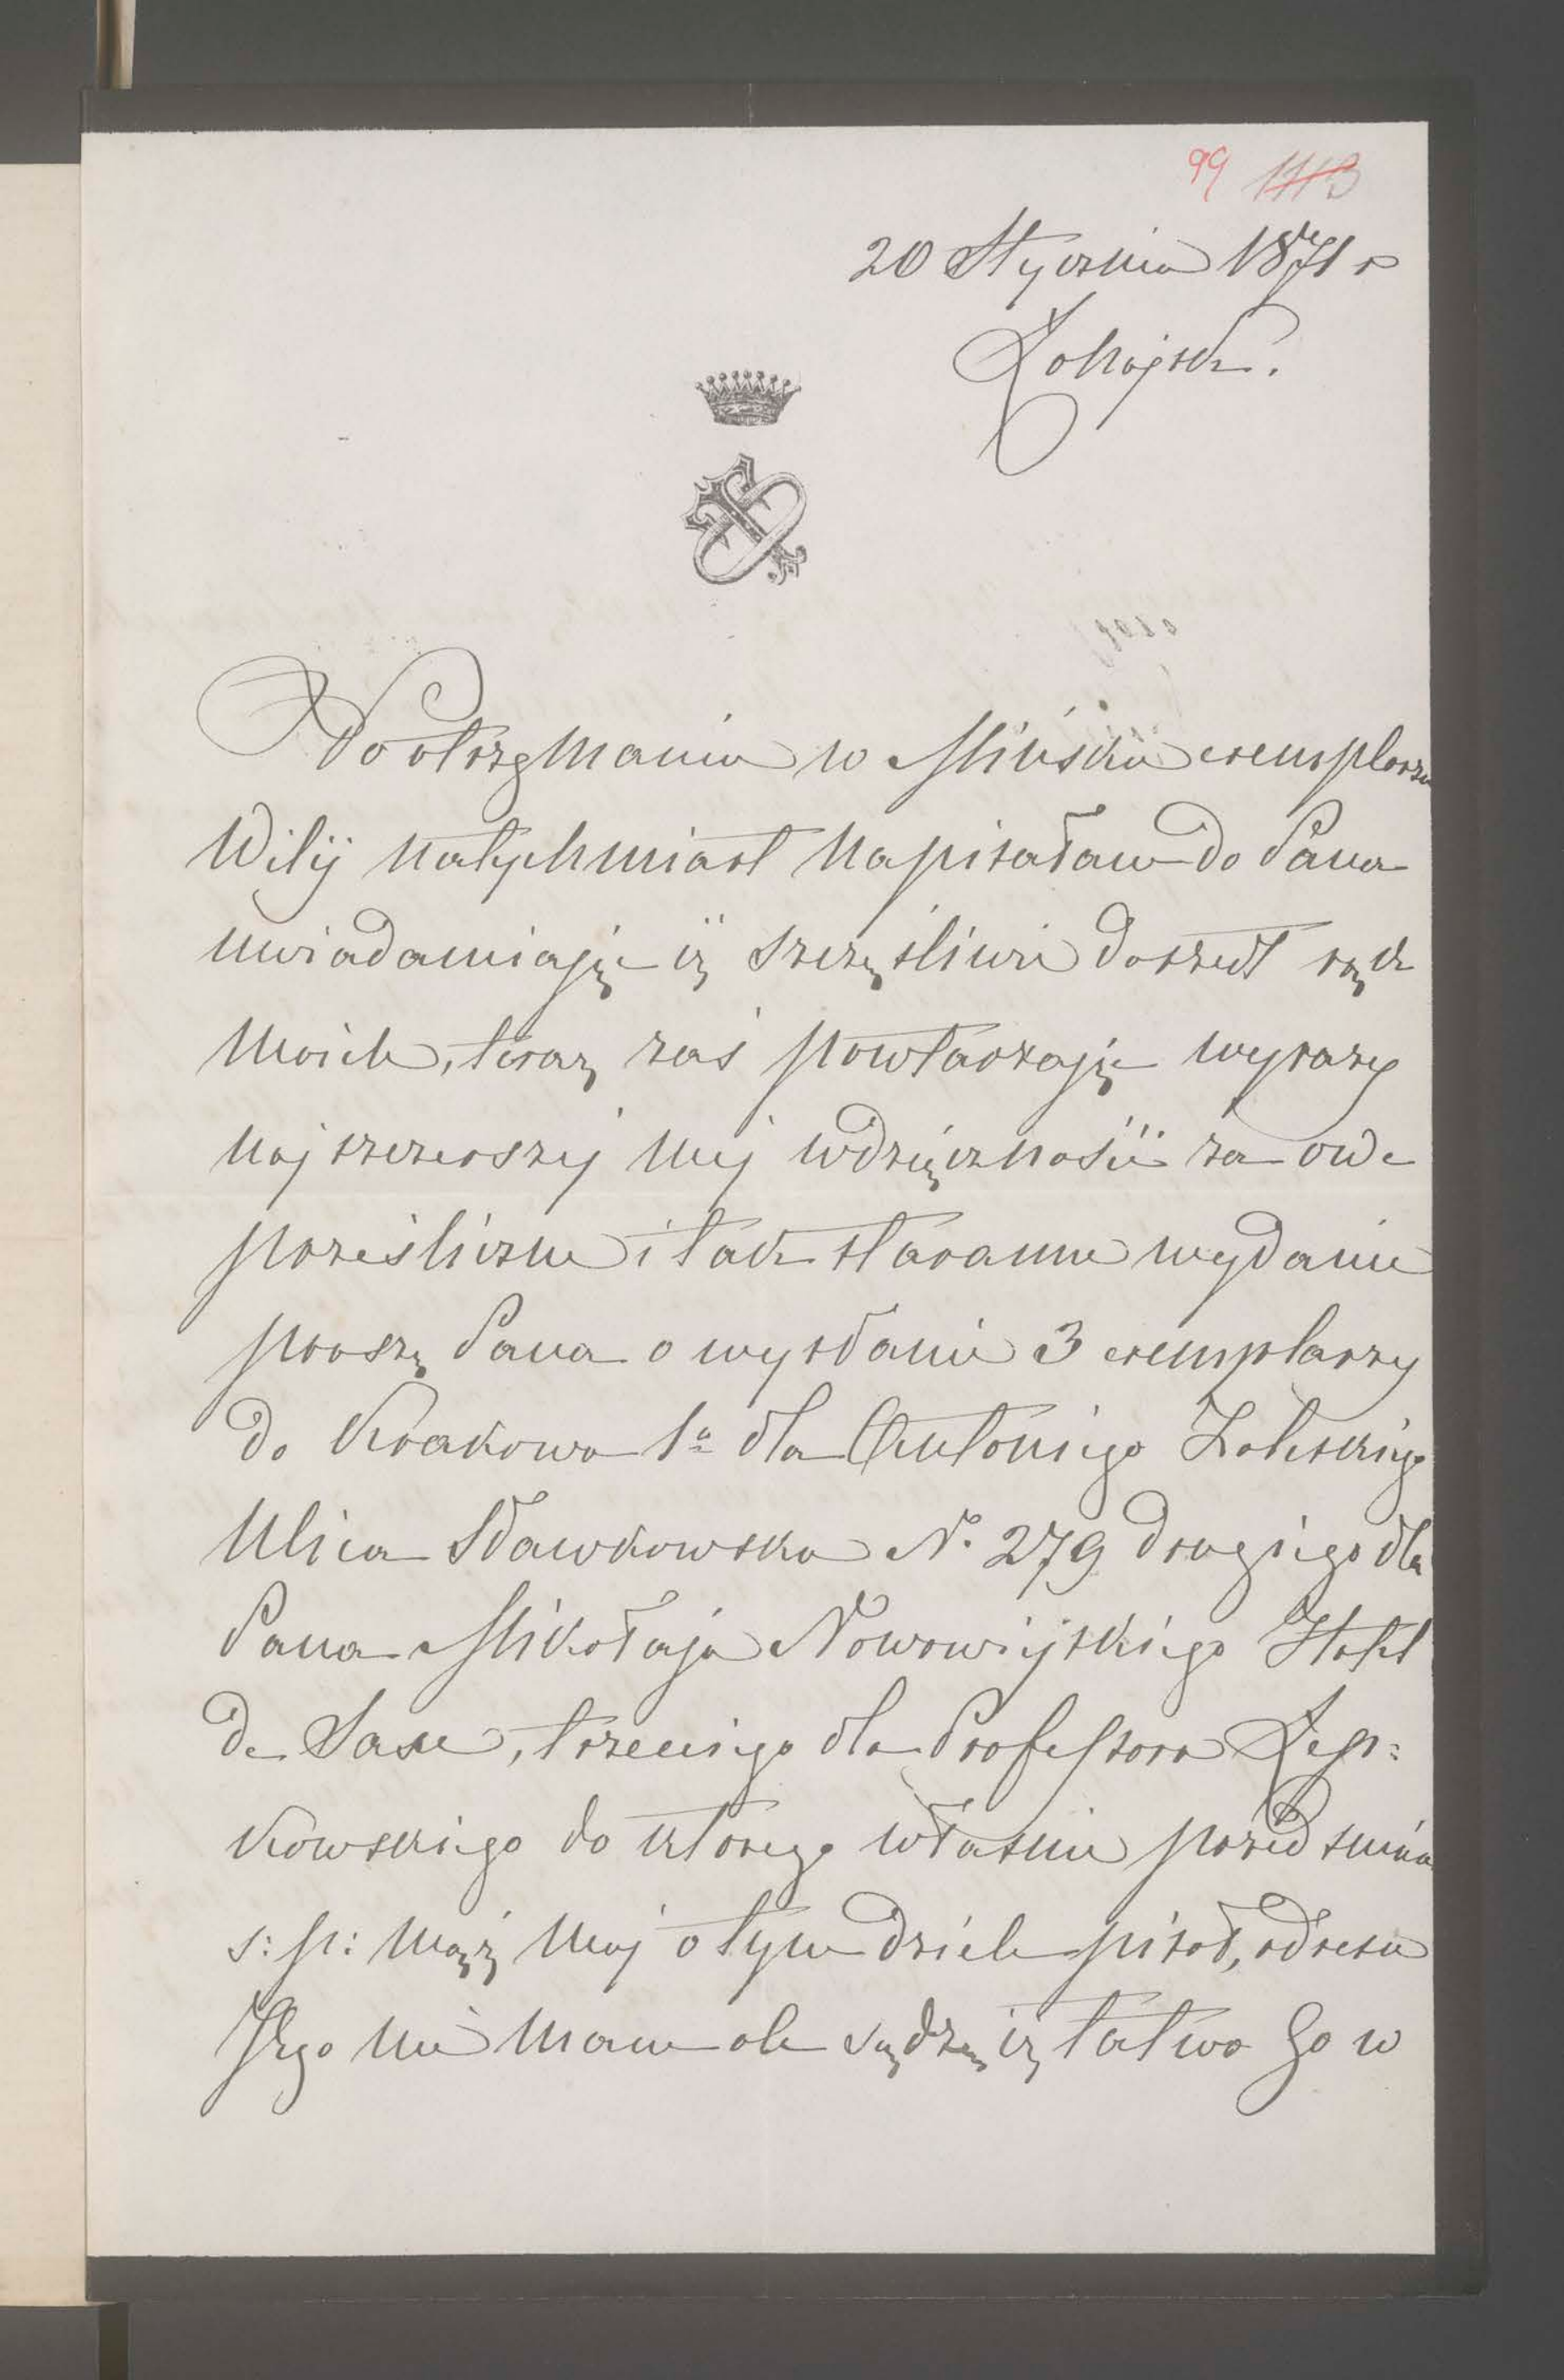 99 1113
20 Stycznia 1871 r
Łohojsk.
Po otrzymaniu w Mińsku exemplarza
Wilij natychmiast napisałam do Pana
uwiadamiając iż szczęśliwie doszedł rąk
moich, teraz zaś powtarzając wyrazy
najszczerszej mej wdzięczności za owe
prześliczne i tak staranne wydanie
proszę Pana o wysłanie 3 exemplarzy
do Krakowa 1º dla Antoniego
Ulica Sławkowska Nº 279 drugiego dla
Pana Mikołaja Nowowiejskiego Hotel
de Saxe, trzeciego dla Professora Łep=
kowskiego do ktorego właśnie przed
s: p: mąż moj o tym dziele pisał, adresu
Jego nie mam ale sądzę iż łatwo Go w